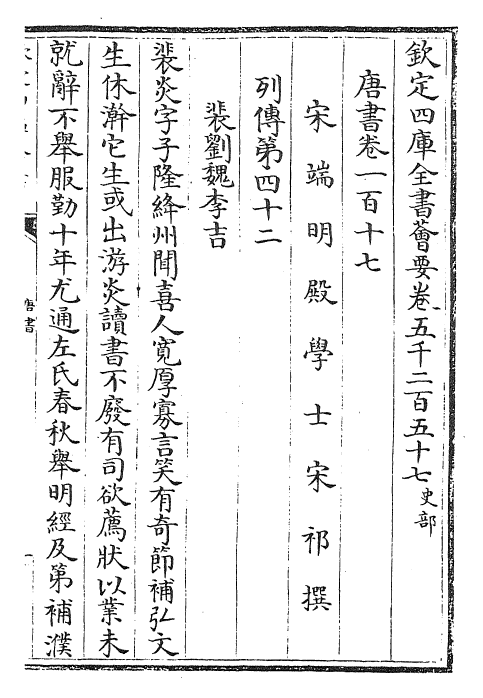 欽定四庫全書薈要卷五千二百五十七史部
唐書卷一百十七
宋端明殿學士宋祁撰
列傳第四十二
裴劉魏李吉
裴炎字子隆絳州聞喜人寛厚寡言笑有奇節補弘文
生休澣它生或出游炎讀書不廢有司欲薦狀以業未
就辭不舉服勤十年尤通左氏春秋舉明經及第補濮
唐書